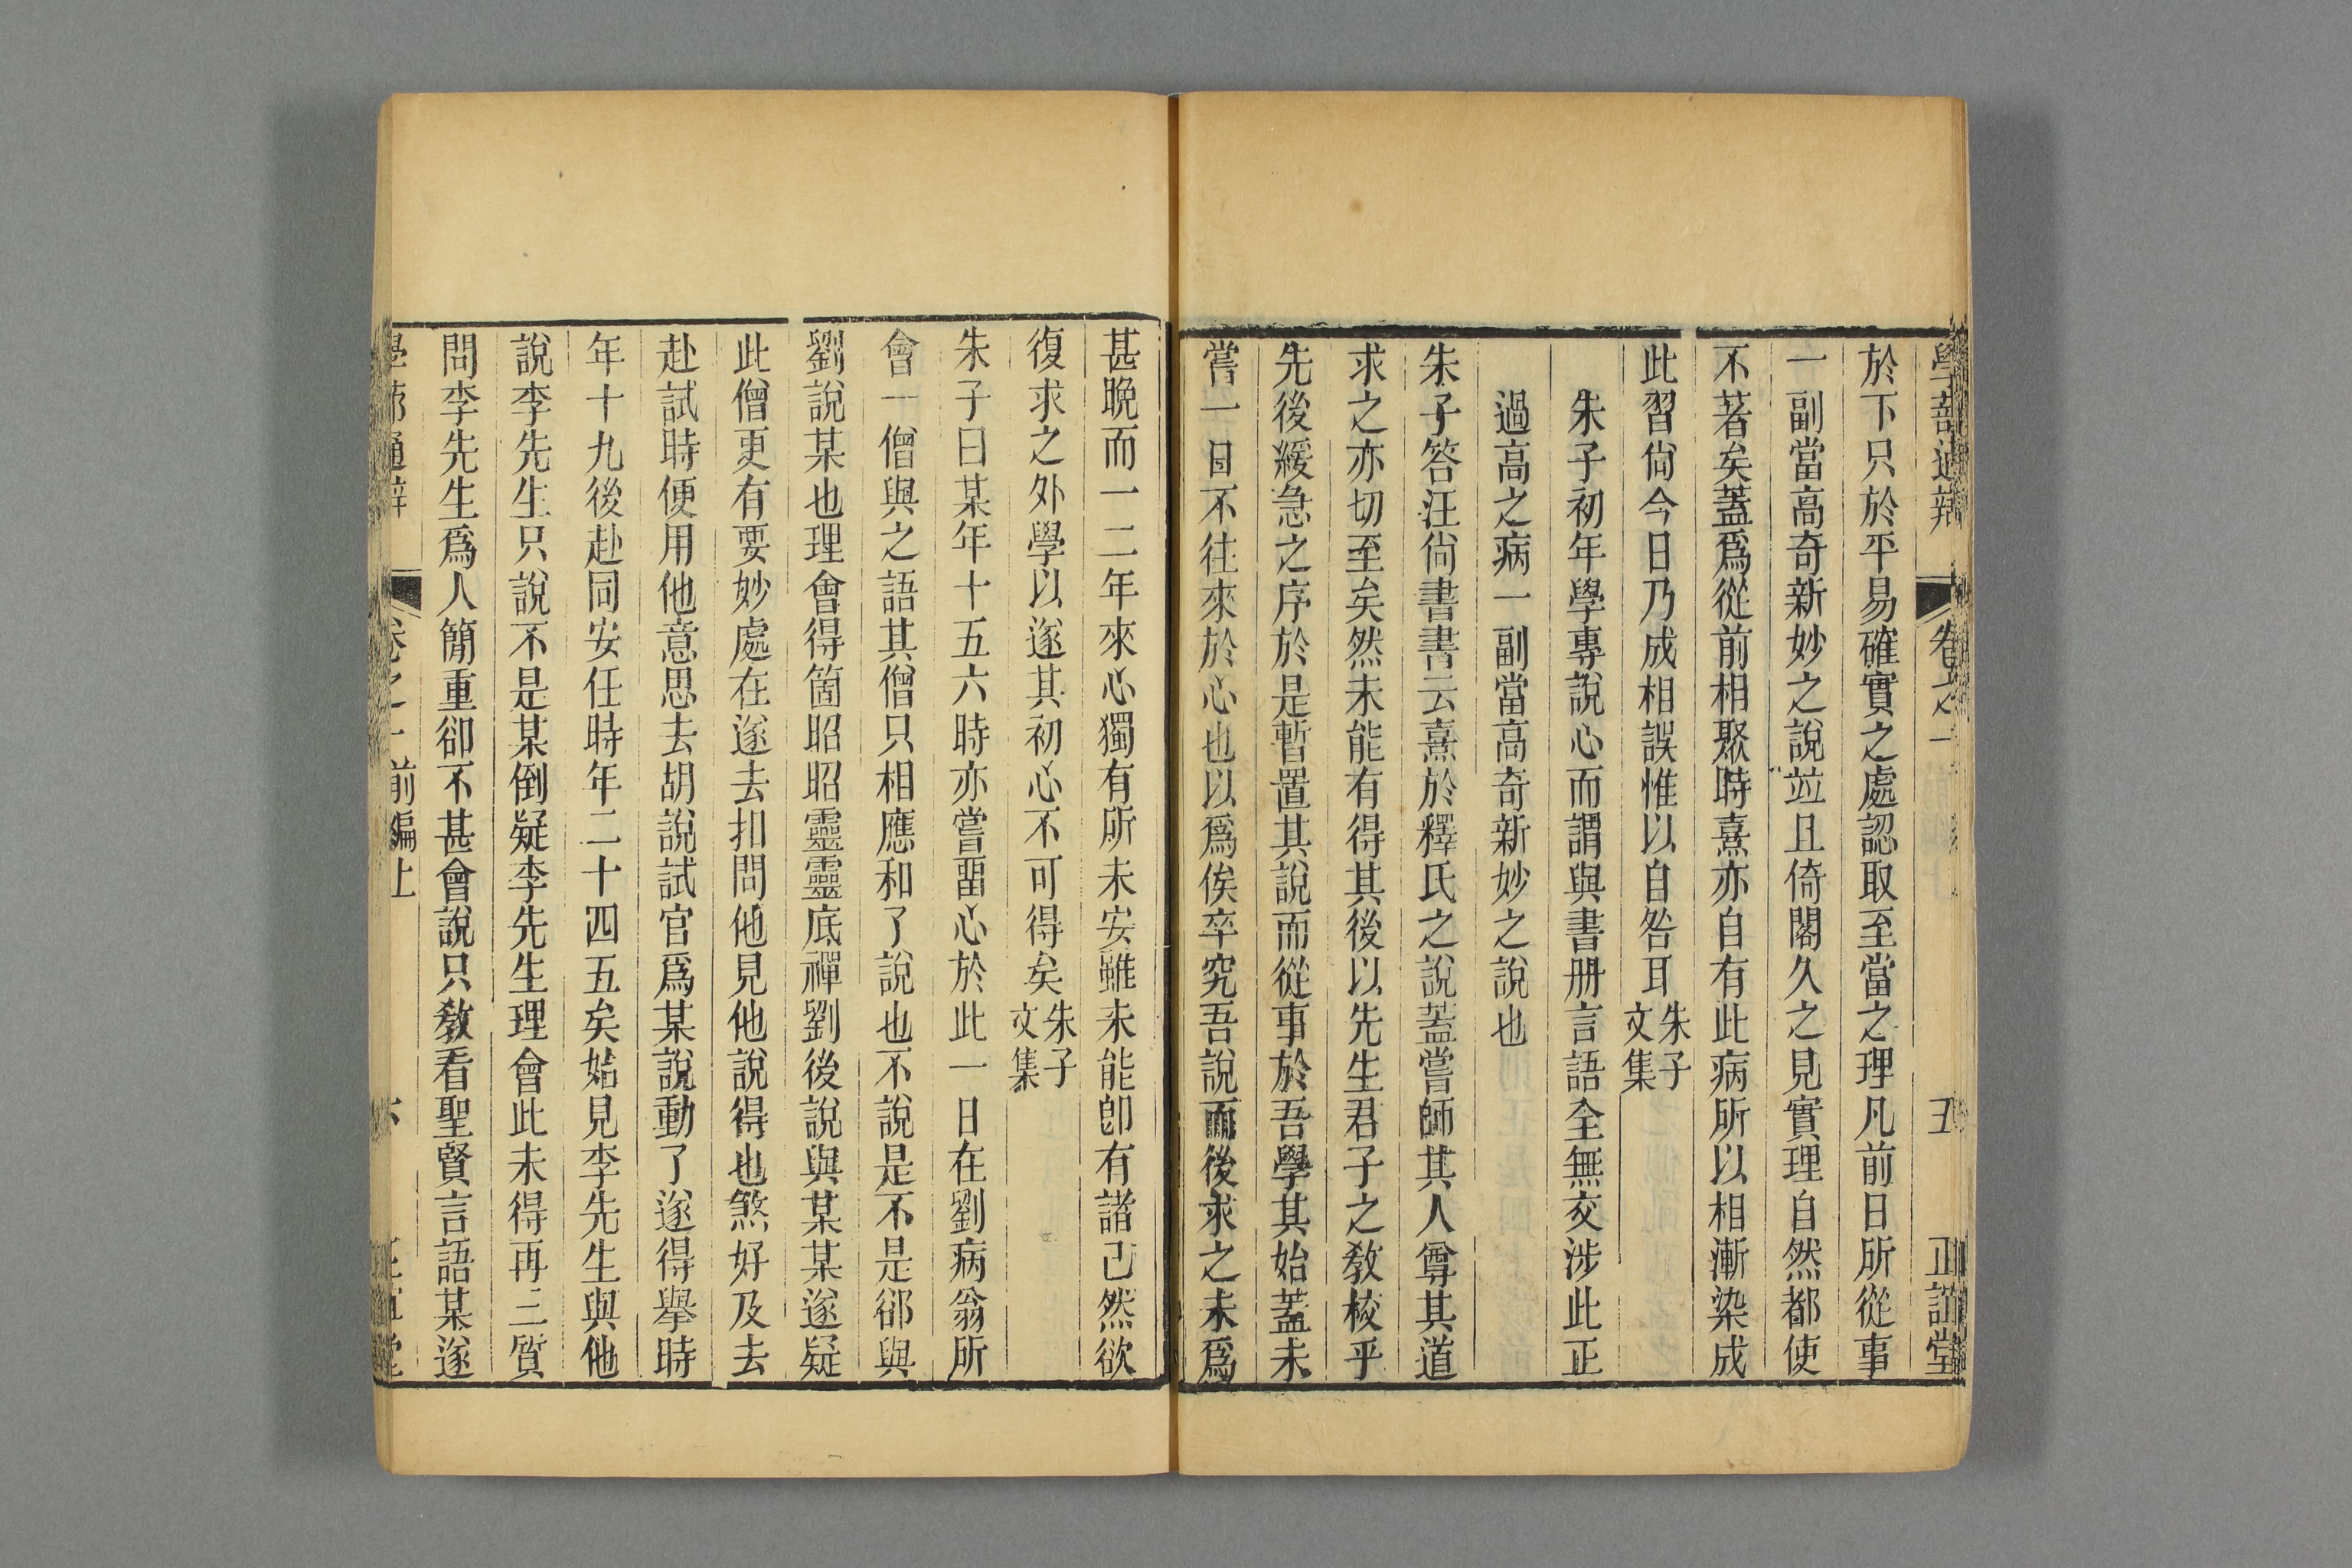 學蔀通辨 卷之一 五 正誼堂
於下只於平易確實之處認取至當之理凡前日所從事
一副當高奇新妙之說竝且倚閣久之見實理自然都使
不著矣蓋爲從前相聚時熹亦自有此病所以相漸染成
此習尙今日乃成相誤惟以自咎耳朱子文集
朱子初年學專說心而謂與書册言語全無交涉此正
過高之病一副當高奇新妙之說也
朱子答汪尙書書云熹於釋氏之說蓋嘗師其人尊其道
求之亦切至矣然未能有得其後以先生君子之敎校乎
先後緩急之序於是暫置其說而從事於吾學其始蓋未
嘗一日不往來於心也以爲俟卒究吾說而後求之未爲
甚晩而一二年來心獨有所未安雖未能卽有諸己然欲
復求之外學以遂其初心不可得矣朱子文集
朱子曰某年十五六時亦嘗畱心於此一日在劉病翁所
會一僧與之語其僧只相應和了說也不說是不是郤與
劉說某也理會得箇昭昭靈靈底禪劉後說與某某遂疑
此僧更有要妙處在遂去扣問他見他說得也煞好及去
赴試時便用他意思去胡說試官爲某說動了遂得舉時
年十九後赴同安任時年二十四五矣始見李先生與他
說李先生只說不是某倒疑李先生理會此未得再三質
問李先生爲人簡重卻不甚會說只敎看聖賢言語某遂
學蔀通辨 卷之一前編上